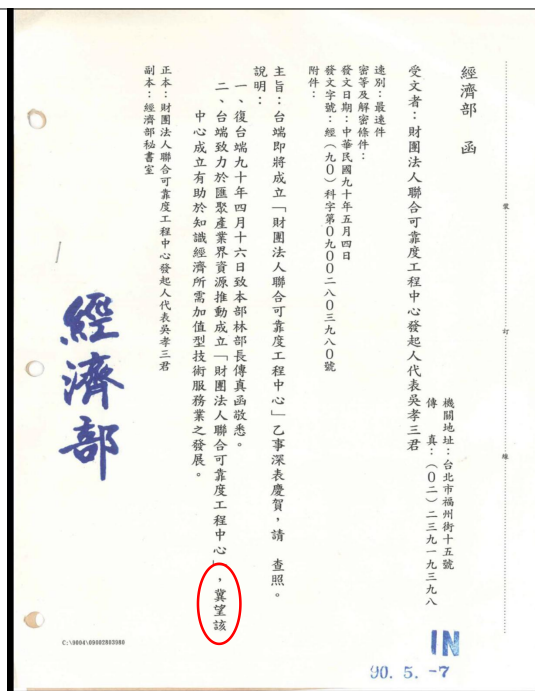 裝
訂
線
經濟部　函
機關地址：台北市福州街十五號
傳　　真：（０二）二三九一九三九八
受文者：財團法人聯合可靠度工程中心發起人代表吳孝三君
速別：最速件
密等及解密條件：
發文日期：中華民國九十年五月四日
發文字號：經（九０）科字第０九００二八０三九八０號
附件：
主旨：台端即將成立「財團法人聯合可靠度工程中心」乙事深表慶賀，請　查照。
說明：
一、復台端九十年四月十六日致本部林部長傳真函敬悉。
二、台端致力於匯聚產業界資源推動成立「財團法人聯合可靠度工程中心」，冀望該
中心成立有助於知識經濟所需加值型技術服務業之發展。
正本：財團法人聯合可靠度工程中心發起人代表吳孝三君
副本：經濟部秘書室
經濟部
C:\9004\09002803980
IN
90. 5. -7